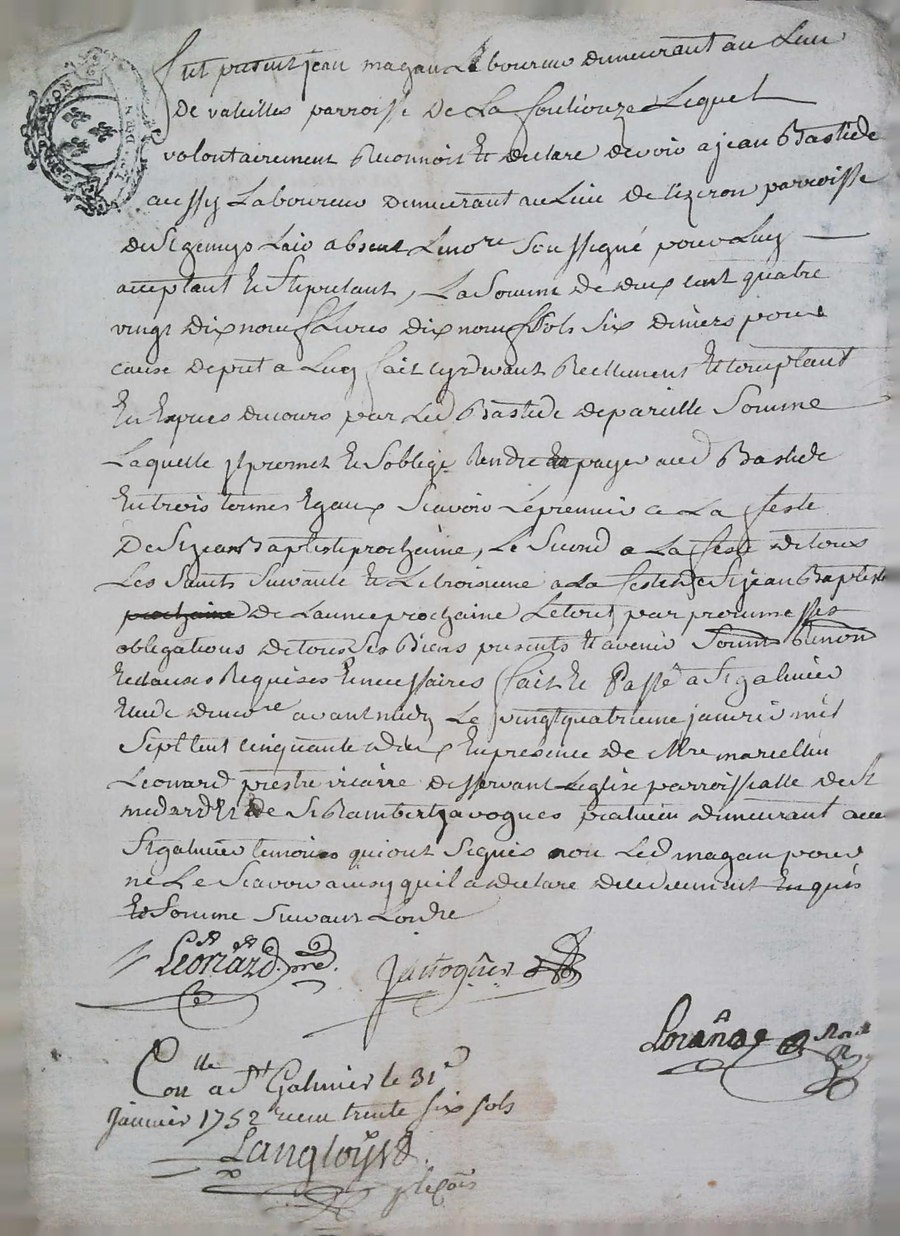 fut present jean magan Laboureur demeurant au Lieu
De valeilles parroisse De La fouliouze Lequel
volontairement Reconnoit Et declare devoir a jean Bastide
aussy Laboureur Demeurant au Lieu de parroisse
de St genuys Laio absent Le nore Soussigné pour Luy
acceptant Et Stipulant, La Somme De deux Cent quatre
vingt Dix neuf Livres Dix neuf Sols Six Deniers pour
cause De prêt a Luy fait cy devant Reellement Et comptant
En Espèces du cours par Led Bastide de pareille Somme
Laquelle jl promet Et Soblige Rendre payer aud Bastide
En trois termes Egaux Scavoir Le premier a La feste
De St jean Baptiste prochaine, Le Second a La feste de tous
Les Saints Suivante Et Le troisieme a La feste De St jean Baptiste
prochaine De Lannee prochaine Le tout par promesses
obligations De tous Ses Biens presents Et avenir Soumis Renon
Et clauses Requises Et necessaires fait Et Passé a St galmier
Etude Du nore avant midy Le vingt quatrieme janvier mil
Sept Cent cinquante deux En presence de Mre marcellin
Leonard prestre vicaire desservant Leglise parroissialle de St
medard Et de Sr Rambert javogues praticien Demeurant aud
St galmier temoins qui ont Signés non Led magan pour
ne Le Scavoir ainsy quil a declare de ce deuement Enquis
Et Somme Suivant Lordre
Leonard pre. Javogues
Coñlle a St Galmier le 31e
Janvier 1752 receu trente Six sols
Langloys